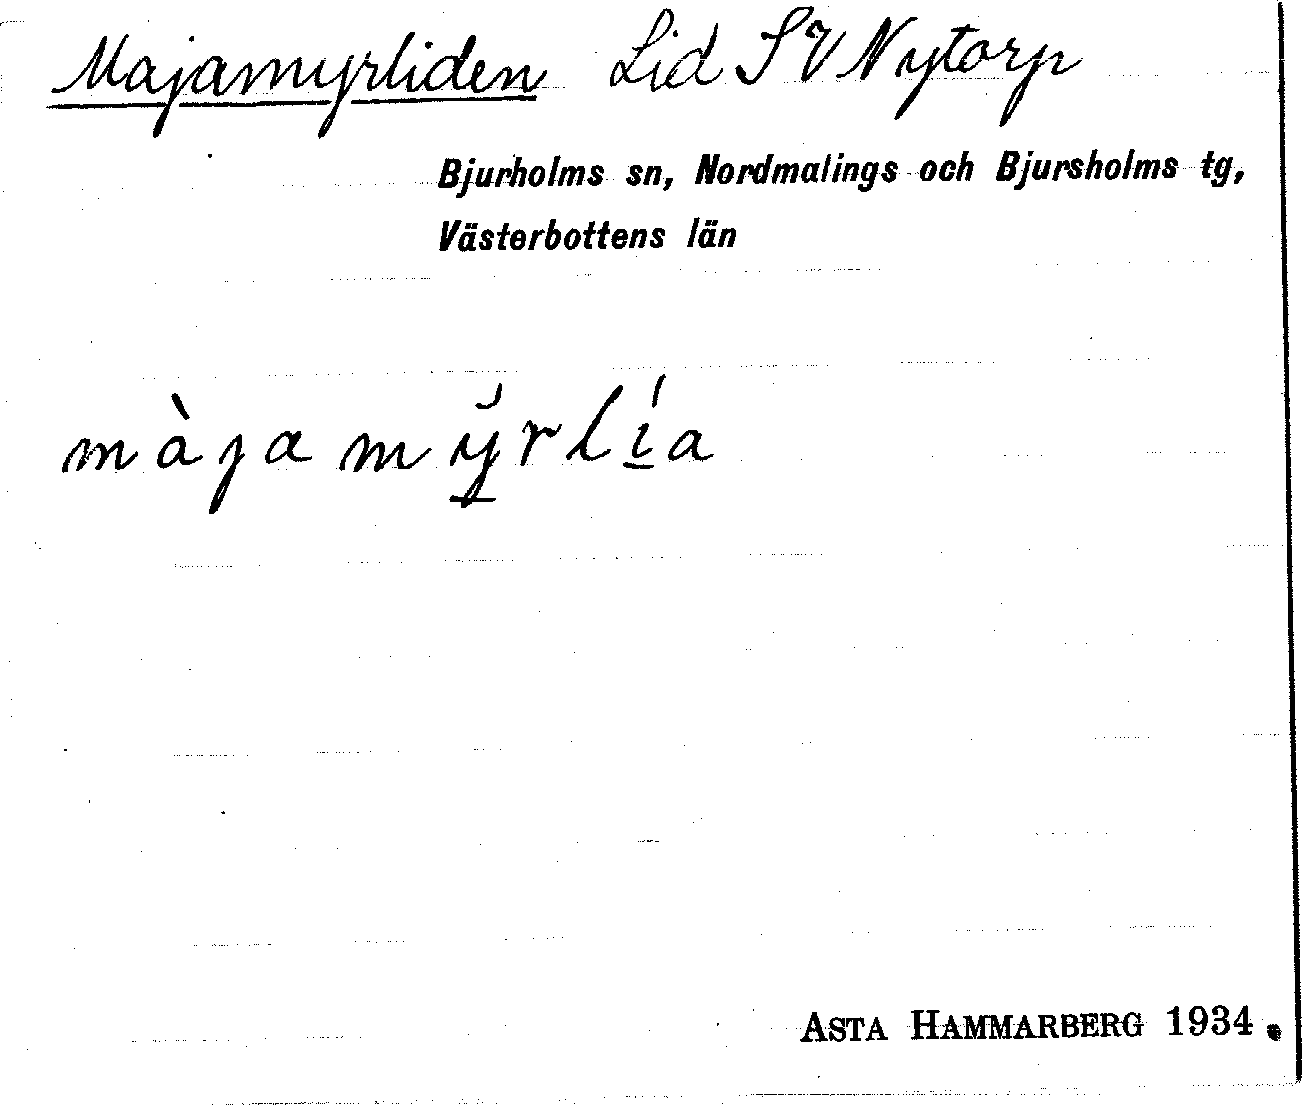 Majamyrliden Lid SV Nytorp
Bjurholms sn, Nordmalings och Bjursholms tg,
Västerbottens län
màjamy̲̆rlí̲a
ASTA HAMMARBERG 1934.